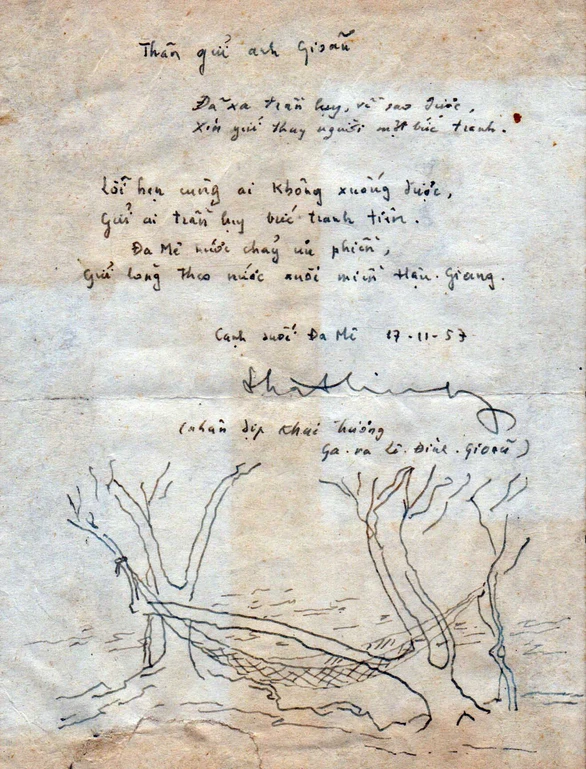 Thân gửi anh Gioãn
Đã xa trần lụy, vẽ sao được,
Xin gửi thay người một bức tranh.
Lỡ hẹn cùng ai không xuống được,
Gửi ai trần lụy bức tranh tiên.
Đa Mê nước chảy ưu phiền,
Gửi lòng theo nước xuôi miền Hậu-Giang.
Cạnh suối Đa Mê 17-11-57
(nhân dịp khai trương
Ga-ra Lê-Đình-Gioãn)